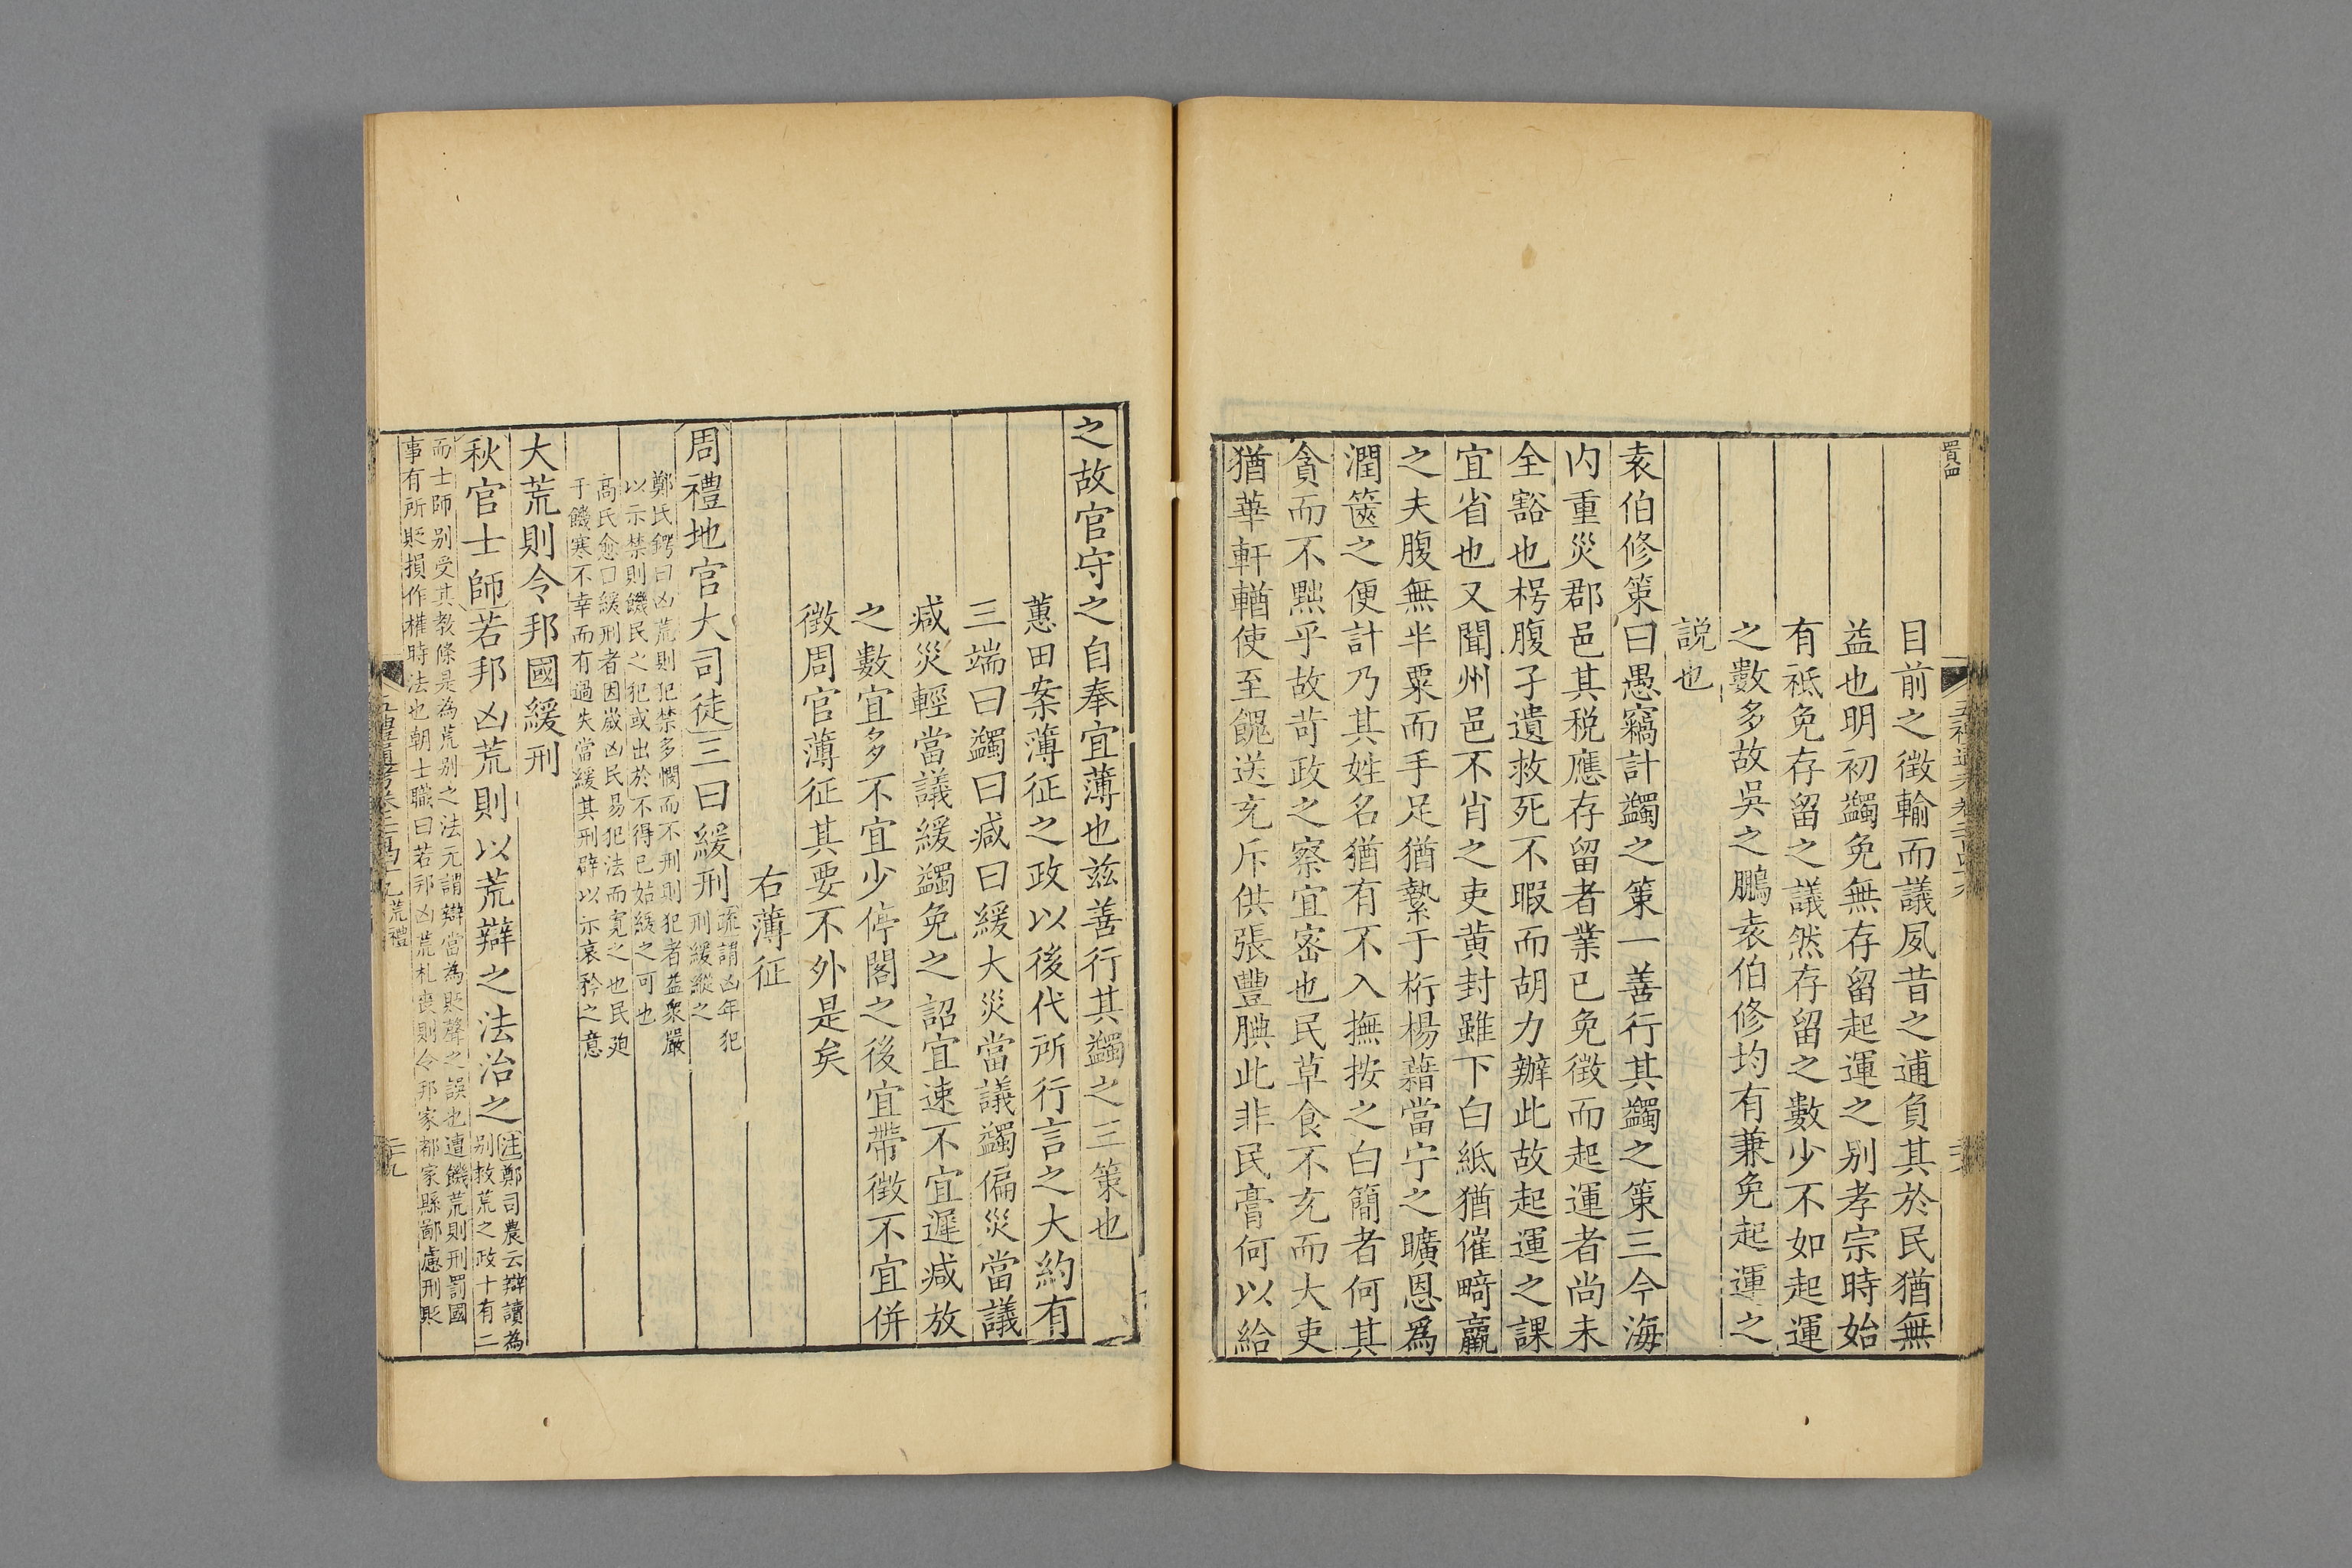 目前之徵輸而議夙昔之逋負其於民猶無
益也明初蠲免無存留起運之别孝宗時始
有祗免存留之議然存留之數少不如起運
之數多故吳之鵬袁伯修均有兼免起運之
説也
袁伯修策曰愚竊計蠲之策一善行其蠲之策三今海
内重災郡邑其税應存留者業已免徵而起運者尚未
全豁也枵腹孑遺救死不暇而胡力辦此故起運之課
宜省也又聞州邑不肖之吏黄封雖下白紙猶催畸羸
之夫腹無半粟而手足猶縶于桁楊藉當宁之曠恩爲
潤篋之便計乃其姓名猶有不入撫按之白簡者何其
貪而不黠乎故苛政之察宜密也民草食不充而大吏
猶華軒輶使至餽送充斥供張豐腆此非民膏何以給
之故官守之自奉宜薄也兹善行其蠲之三策也
蕙田案薄征之政以後代所行言之大約有
三端曰蠲曰减曰緩大災當議蠲偏災當議
减災輕當議緩蠲免之詔宜速不宜遲减放
之數宜多不宜少停閣之後宜帶徵不宜併
徵周官薄征其要不外是矣
右薄征
周禮地官大司徒三曰緩刑疏謂凶年犯
刑緩縱之
鄭氏鍔曰凶荒則犯禁多憫而不刑則犯者益衆嚴
以示禁則饑民之犯或出於不得已始緩之可也
高氏愈曰緩刑者因歲凶民易犯法而寛之也民廹
于饑寒不幸而有過失當緩其刑辟以示哀矜之意
大荒則令邦國緩刑
秋官士師若邦凶荒則以荒辯之法治之注鄭司農云辯讀為
别救荒之政十有二
而士師别受其教條是為荒别之法元謂辯當為貶聲之誤也遭饑荒則刑罰國
事有所貶損作權時法也朝士職曰若邦凶荒札喪則令邦家都家縣鄙慮刑貶
五禮通考卷二百四十九 荒禮
二十九